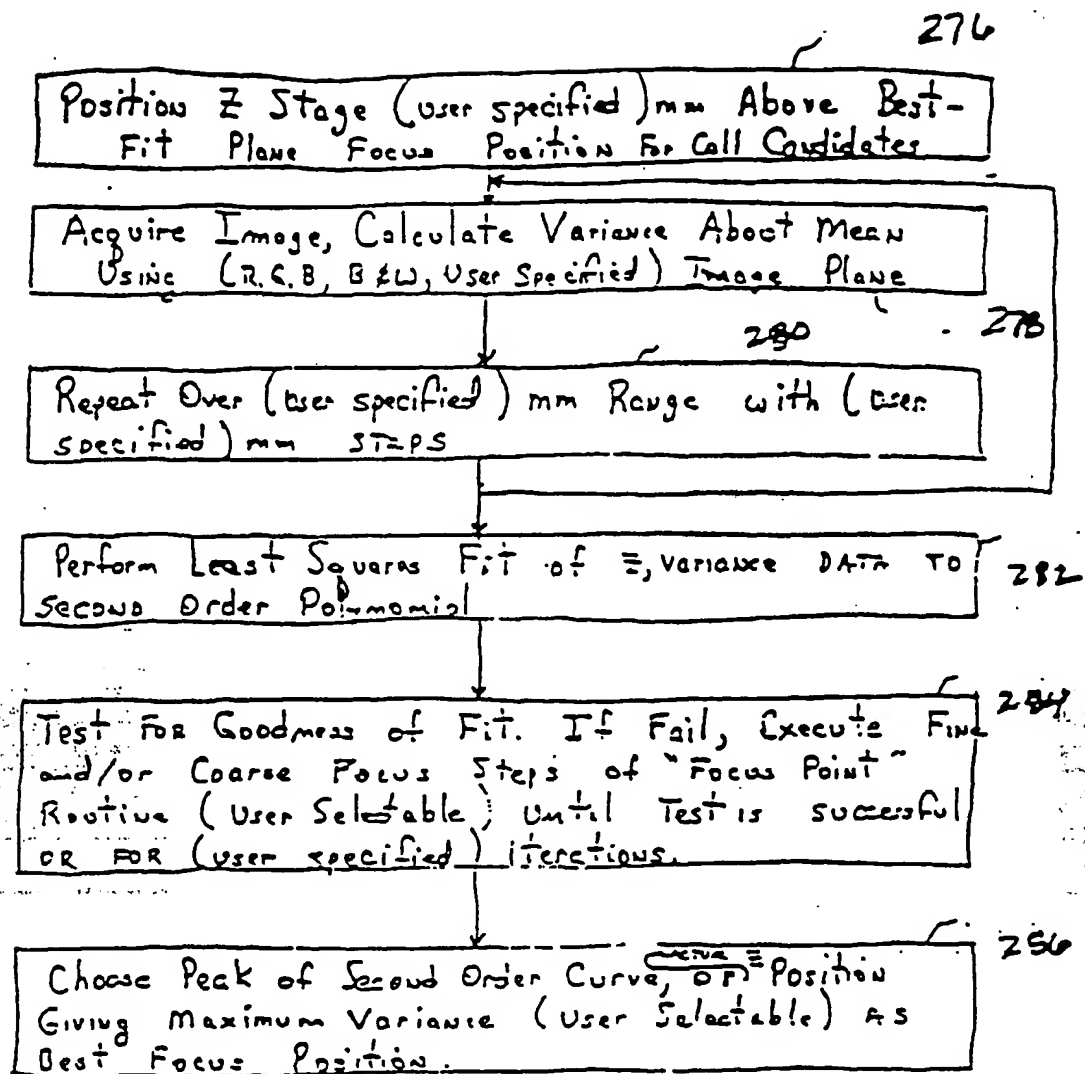 276
Position Z Stage (user specified) mm Above Best-
Fit Plane Focus Position For Cell Candidates
Acquire Image, Calculate Variance About Mean
Using (R.G.B, B&W, User Specified) Image Plane
278
280
Repeat Over (user specified) mm Range with (user
specified) mm STEPS
Perform Least Squares Fit of Z, Variance DATA TO
Second Order Polynomial
282
284
Test For Goodness of Fit. If Fail, Execute Fine
and/or Coarse Focus Steps of "Focus Point"
Routine (User Selectable) Until Test is successful
OR FOR (user specified) iterations.
286
Choose Peak of Second Order Curve, OR Z Position
Giving Maximum Variance (User Selectable) As
Best Focus Position.